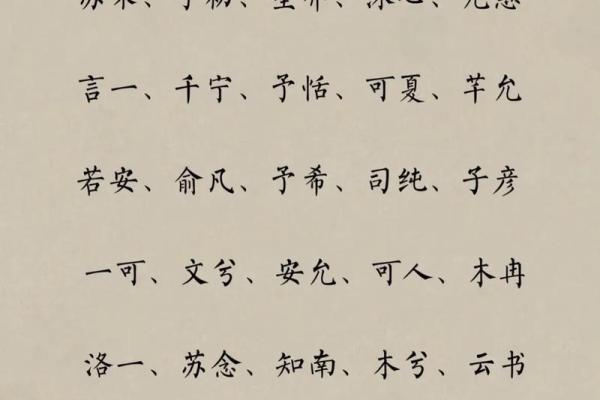 言一、千宁、予恬、可夏、芊允
若安、俞凡、予希、司纯、子彦
一可、文兮、安允、可人、木冉
洛一、苏念、知南、木兮、云书